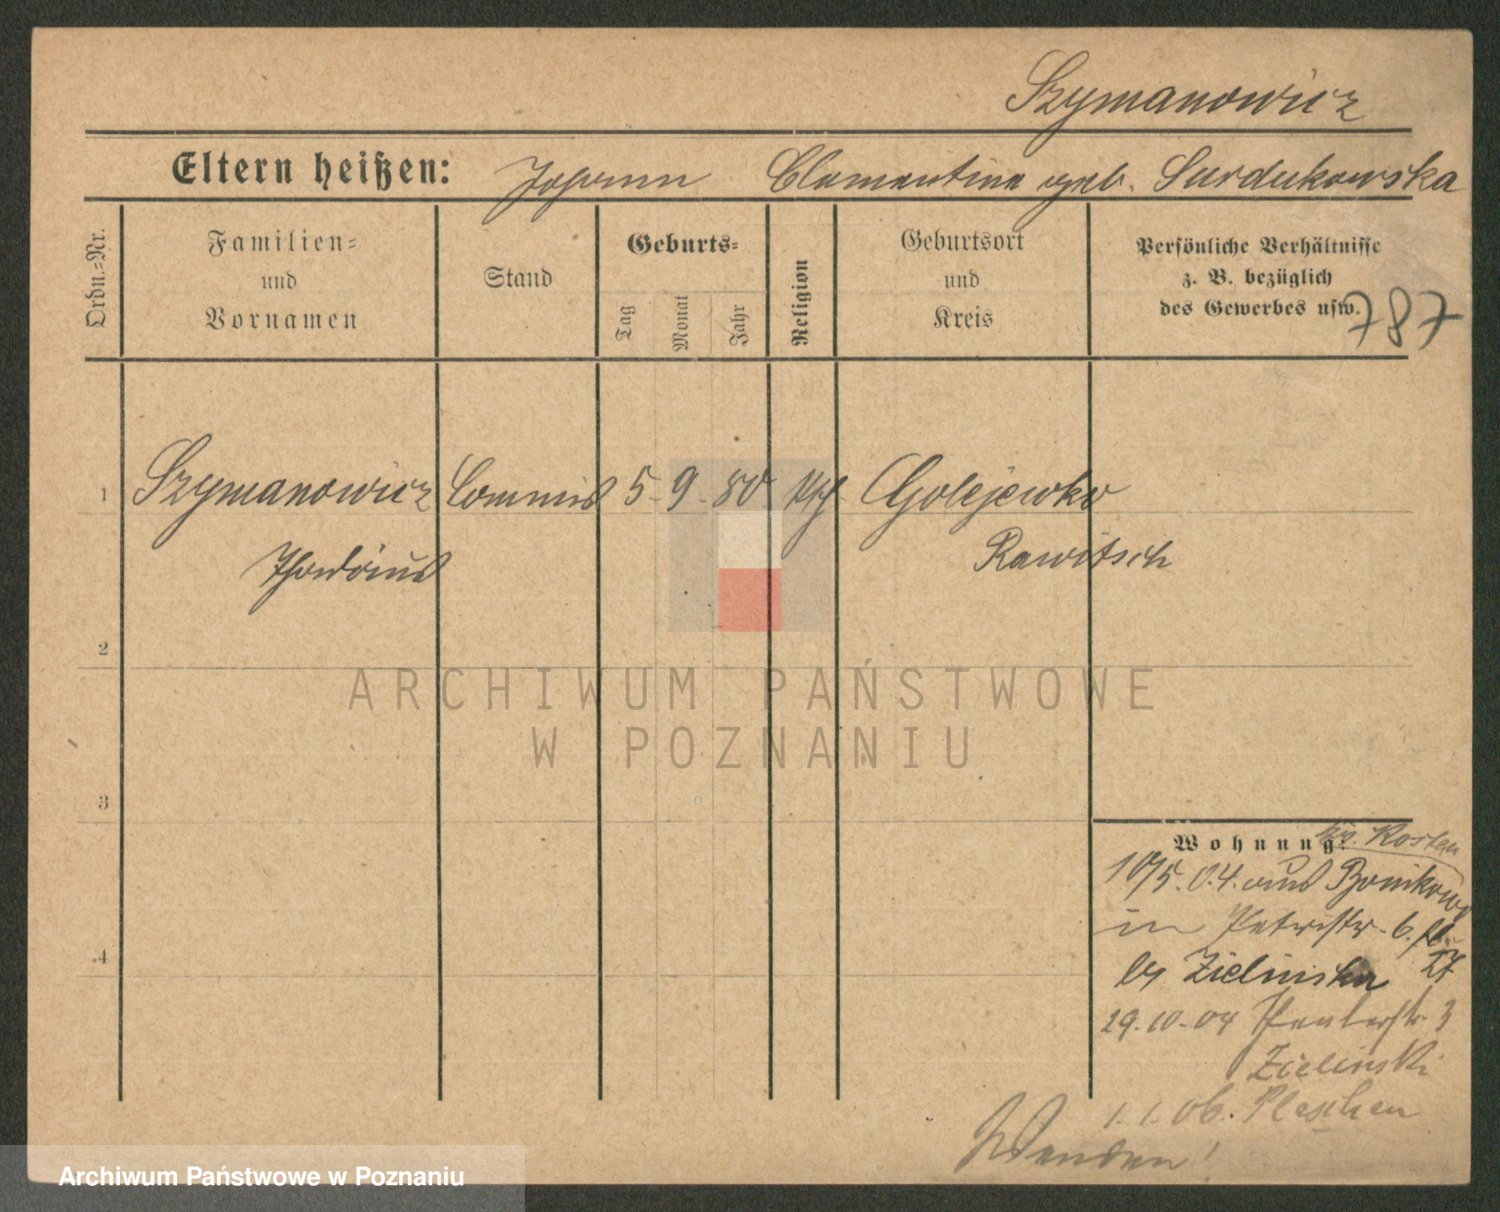 Szymanowicz
Eltern heißen: Johann Clementine geb. Surdukowska
Ordn.=Nr.
Familien=
und
Vornamen
Stand
Geburts=
Tag
Monat
Jahr
Religion
Geburtsort
und
Kreis
Persönliche Verhältnisse
z. B. bezüglich
des Gewerbes usw.
787
1 Szymanowicz Commis 5. 9. 80 kth Golejewko
Rawitsch
2
3
4
Wohnung:
Kr. Kosten
10/5. 04. aus Bonikowo
in Petristr. 6.
by Zielinska
29.10.04 3
Zielinski
1.1.06. Pleschen
Wenden!
ARCHIWUM PAŃSTWOWE
W POZNANIU
Archiwum Państwowe w Poznaniu